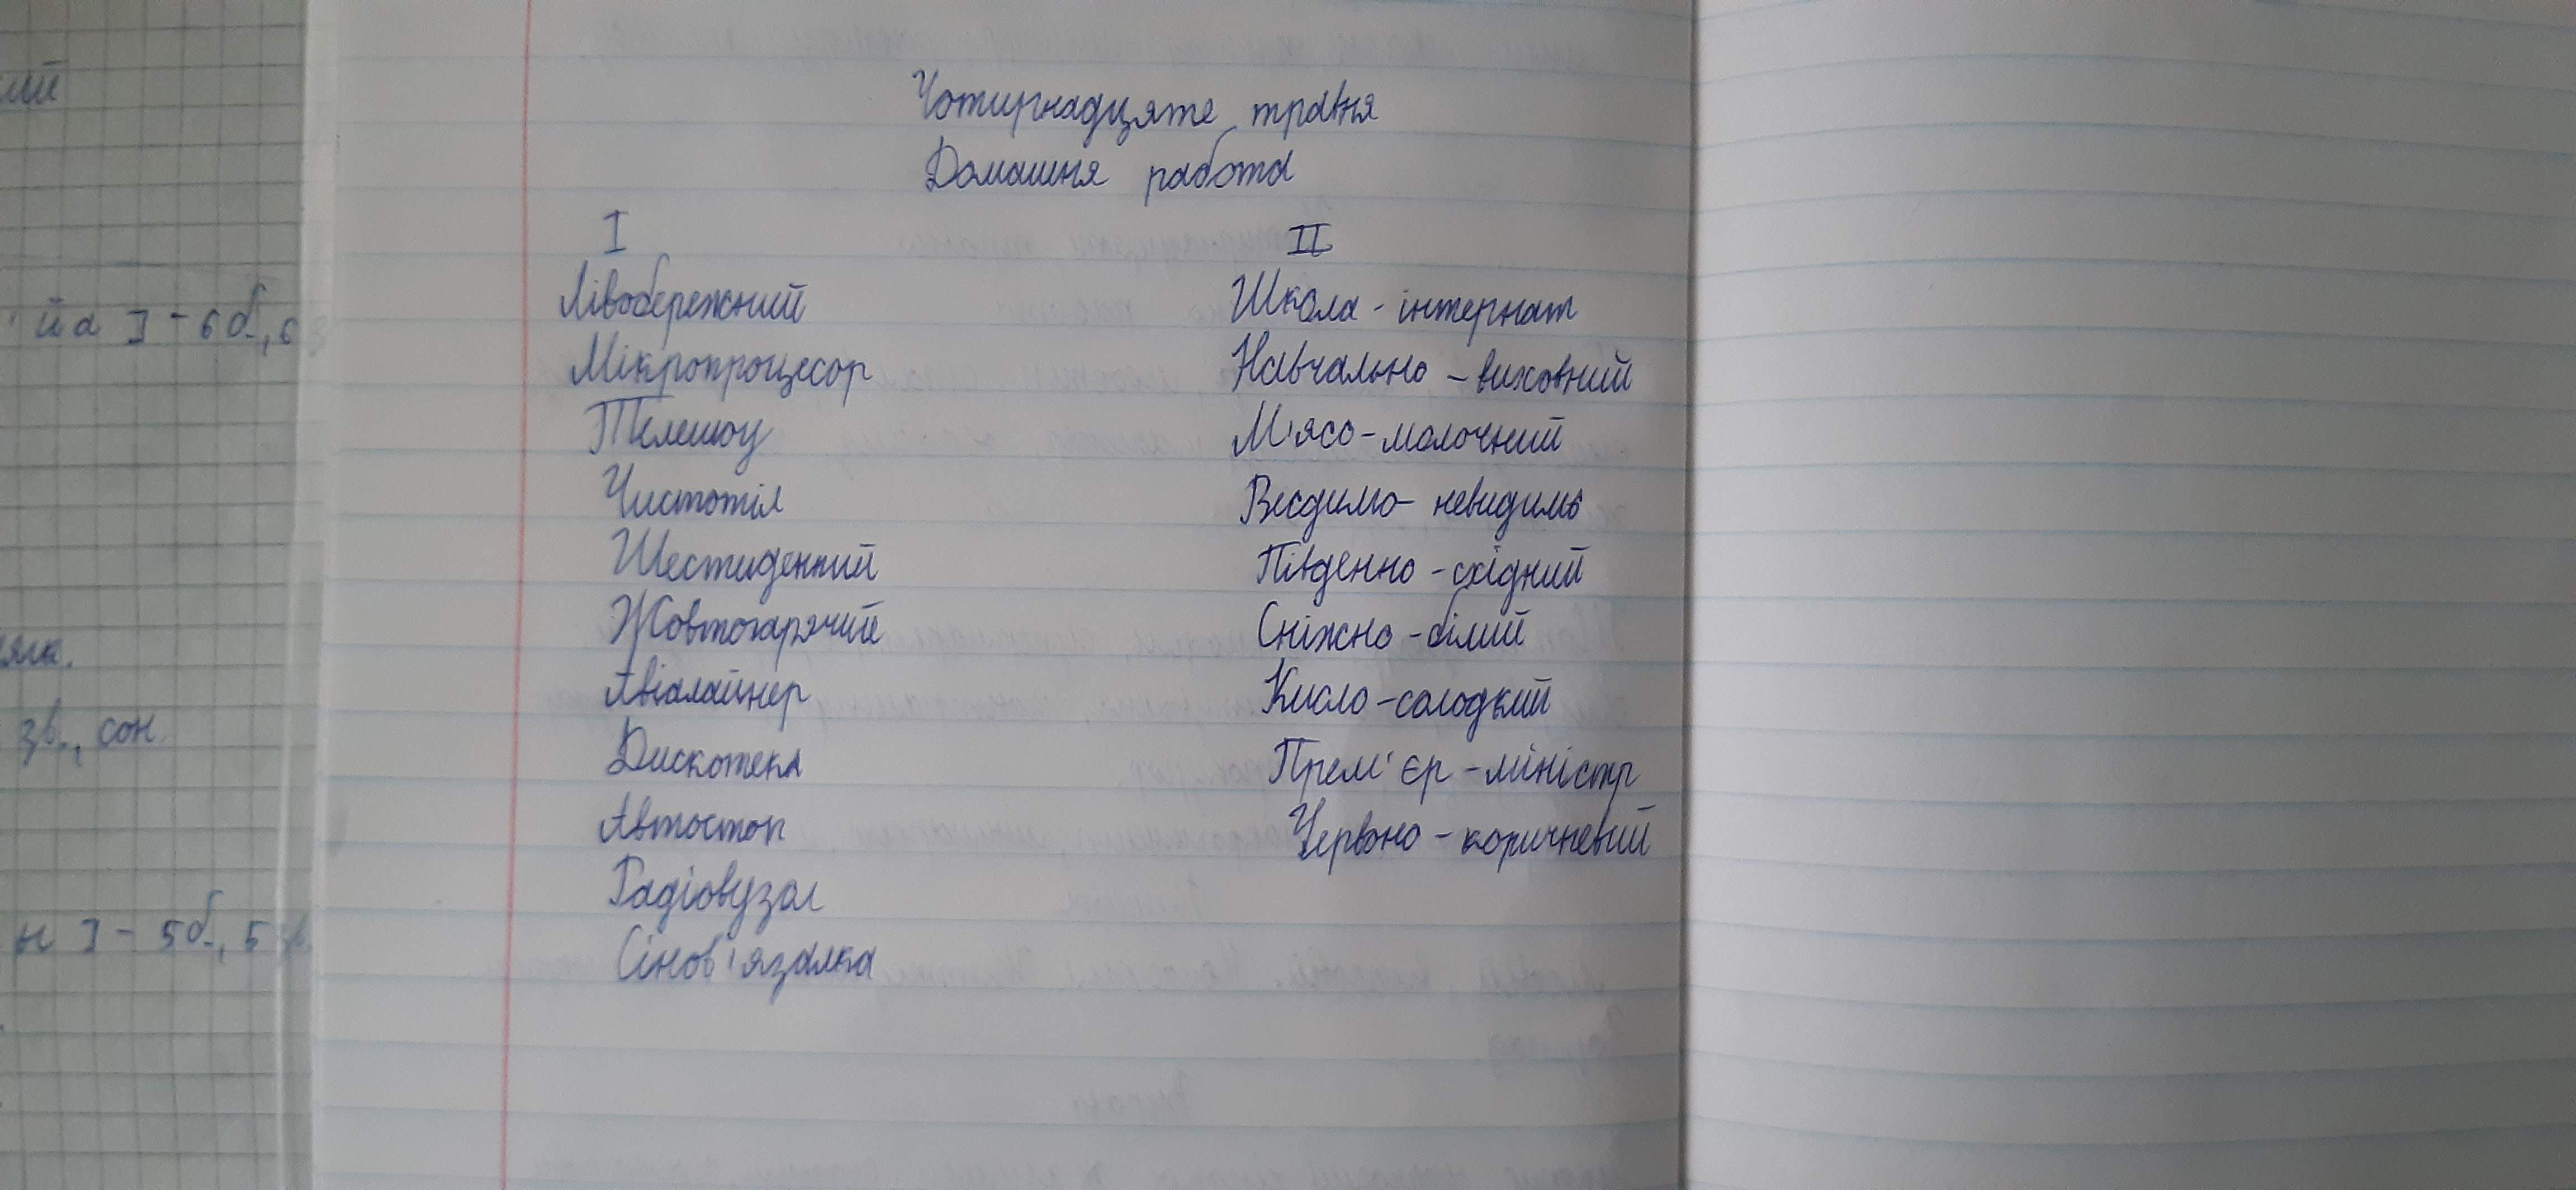 Чотирнадцяте травня
Домашня работа
I
Лівобережний
Мікропроцесор
Телешоу
Чистотіл
Шестиденний
Жовтогарячий
Авіалайнер
Дискотека
Автостоп
Радіовузол
Сінов'язалка
II
Школа - інтернат
Навчально - виховний
М'ясо - молочний
невидимо
Південно - східний
Сніжно - білий
Кисло - солодкий
Прем'єр - міністр
Червоно - коричневий
ий
йа ] - 6 б., 6
зв., сон.
н ] - 5 б., 5